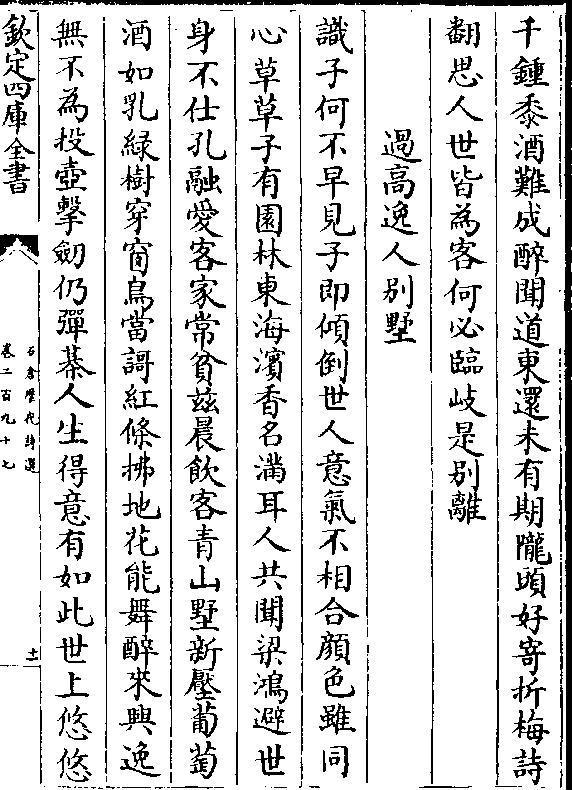 千鍾黍酒難成醉聞道東還未有期隴頭好寄折梅詩
翻思人世皆為客何必臨岐是别離
過高逸人别墅
識子何不早見子即傾倒世人意氣不相合顔色雖同
心草草子有園林東海濱香名滿耳人共聞梁鴻避世
身不仕孔融愛客家常貧兹晨飲客青山墅新壓葡萄
酒如乳緑樹穿窗鳥當謌紅條拂地花能舞醉來興逸
無不為投壺擊劒仍彈棊人生得意有如此世上悠悠
欽定四庫全書
石倉歴代詩選
卷二百九十七
十一